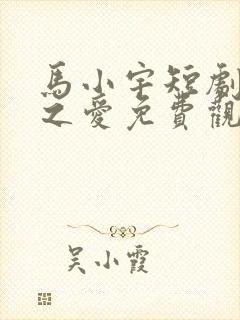 馬小宇短劇
之愛免費觀
吳小霞